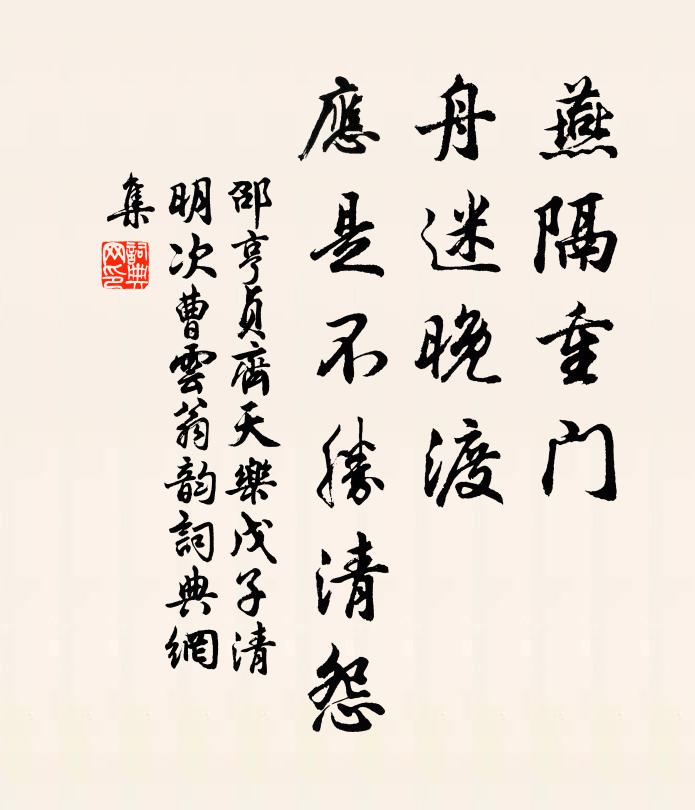 燕隔重門
舟迷晚渡
應是不勝清怨
邵亨貞齊天樂戊子清
明次曹雲翁韵詞典網
集
詞典網印